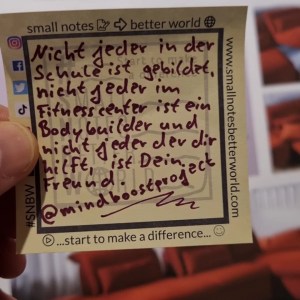 small notes → better world
Nicht jeder in der
Schule ist gebildet,
nicht jeder im
Fitnesscenter ist ein
Bodybuilder und
nicht jeder der dir
hilft, ist Dein
Freund.
@mindboostproject
...start to make a difference...
#SNBW
www.smallnotesbetterworld.com